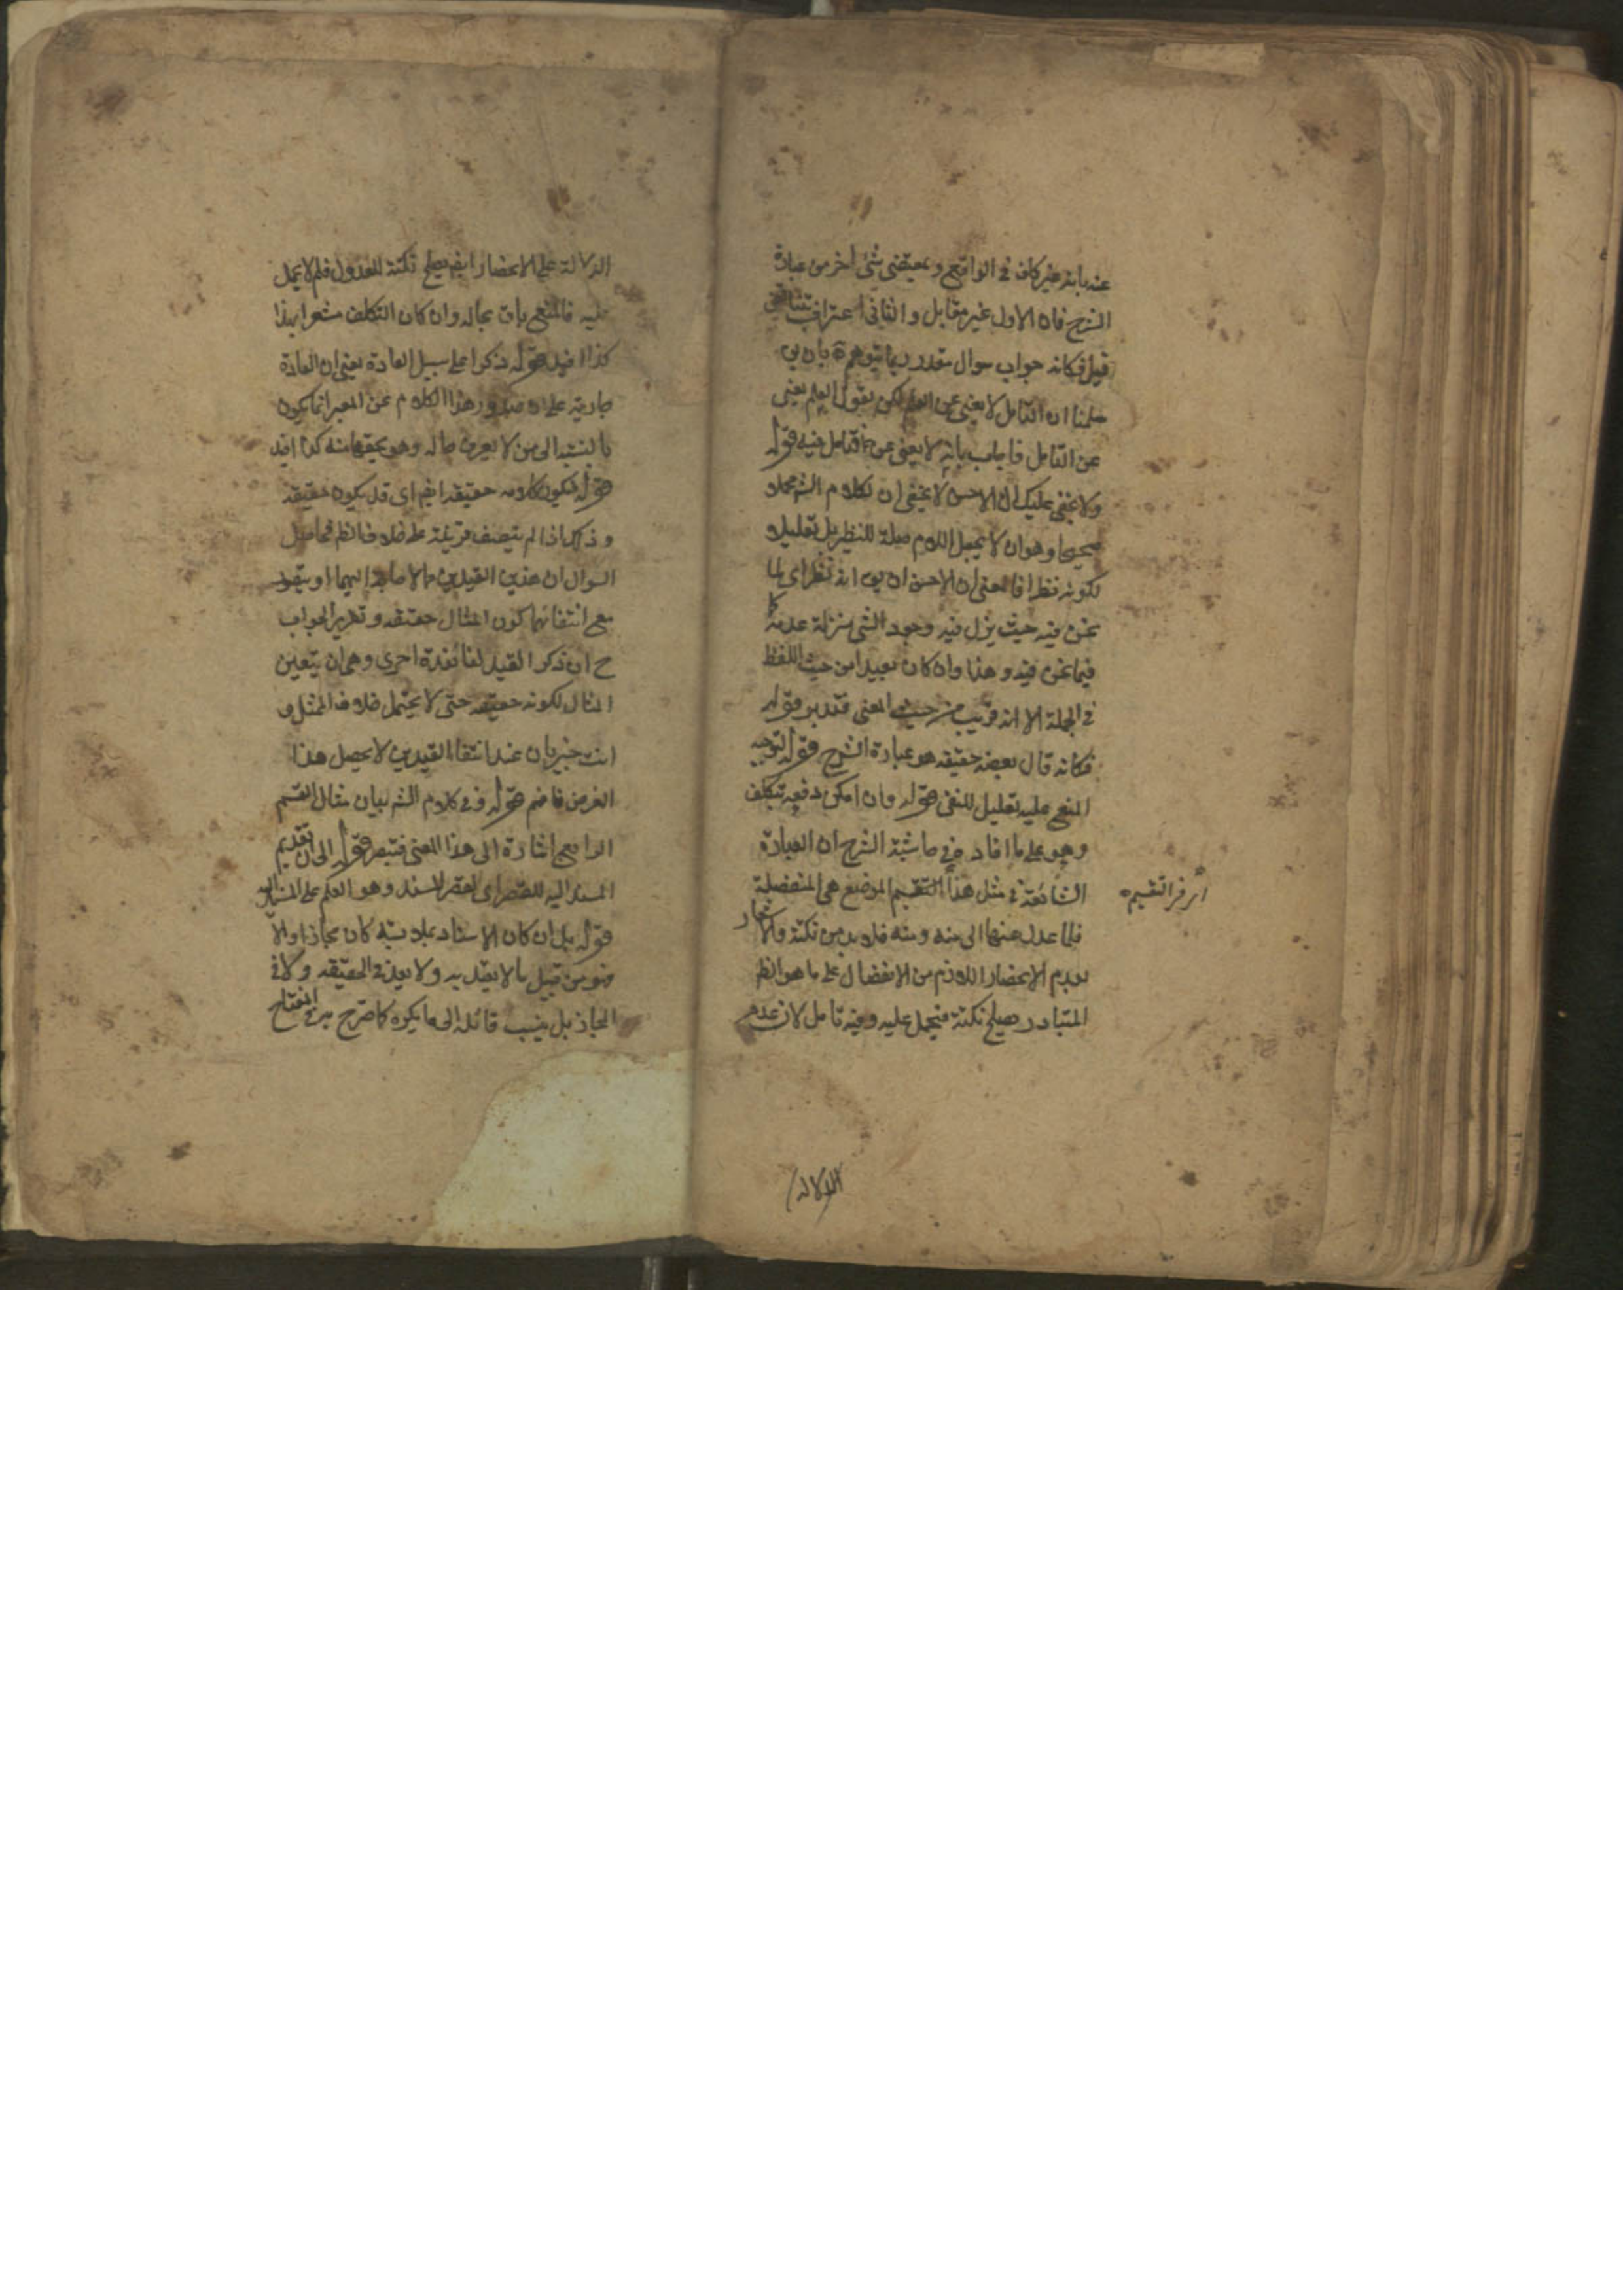 عنه بانه غير كاف في الواقع و بمعنى شئ اخر من عبارة
الشرح فان الاول غير مقابل و الثاني اعتراف
قيل فكانه جواب سوال مقدر ربما يتوهم بان يق
سلمنا ان التامل لا يغني عن العلم لكن نقول العلم يغني
عن التامل فاجاب بانه لا يغني عن فتامل فيه قوله
ولا يخفى عليك ان الاحسن لا يخفى ان لكلام الشم محملا
صحيحا وهو ان لا يجعل اللام صلة للنظير بل تعليلا
لكونه نظيرا فالمعنى ان الاحسن ان يق انه نظير اي لما
نحن فيه حيث نزل فيه وجود الشئ منزلة عدمه كما
فيما نحن فيه و هذا وان كان بعيدا من حيث اللفظ
في الجملة الا انه قريب من حيث المعنى فتدبر قوله
فكانه قال بعضه حقيقه هو عبارة الشرح قوله لتوجه
المنع عليه تعليل للنفي قوله وان امكن دفعه بتكلف
وهو على ما افاد في حاشية الشرح ان العبارة
الشائعة في مثل هذا التقسيم الموضع هي المنفصلة
فلما عدل عنها الى منه و منه فلا بد من نكتة والاشعار
بعدم الانحصار اللازم من الانفصال على ما هو الظ
المتبادر يصلح نكتة فيحمل عليه و فيه تامل لان عدم
التقسيم
الدلالة
الدلالة على الانحصار ايضا يصلح نكتة للعدول فلم لا يحمل
عليه فالمنع باق بحاله وان كان التكلف مشعرا بهذا
كذا افيد قوله ذكرا على سبيل العادة يعني ان العادة
جارية على ان صدور هذا الكلام عن المخبر انما يكون
بالنسبة الى من لا يعرف حاله وهو يخفيها منه كذا افيد
قوله فيكون كلامه حقيقه ايضا اى قد يكون حقيقه
و ذلك اذا لم ينصب قرينة على خلافه الظ فحاصل
السوال ان هذين القيدين مما لا حاجة اليهما او يتصور
مع انتفائهما كون المثال حقيقه و تقرير الجواب
ح ان ذكر القيد لفائدة اخرى وهي ان يتعين
المثال لكونه حقيقه حتى لا يحتمل خلاف الممثل و
انت خبير بان عند انتفاء القيدين لا يحصل هذا
الغرض فافهم قوله و في كلام الشم بيان مثال القسم
الرابع اشارة الى هذا المعنى فتبصر قوله الى ان تقديم
المسند اليه للقصر اى لقصر المسند وهو العلم على المسند اليه
قوله بل ان كان الاسناد بملابسة كان مجازا والا
فهو من قبيل ما لا يعتد به ولا يعد في الحقيقه ولا في
المجاز بل ينسب قائله الى ما يكره كما صرح به في المفتاح